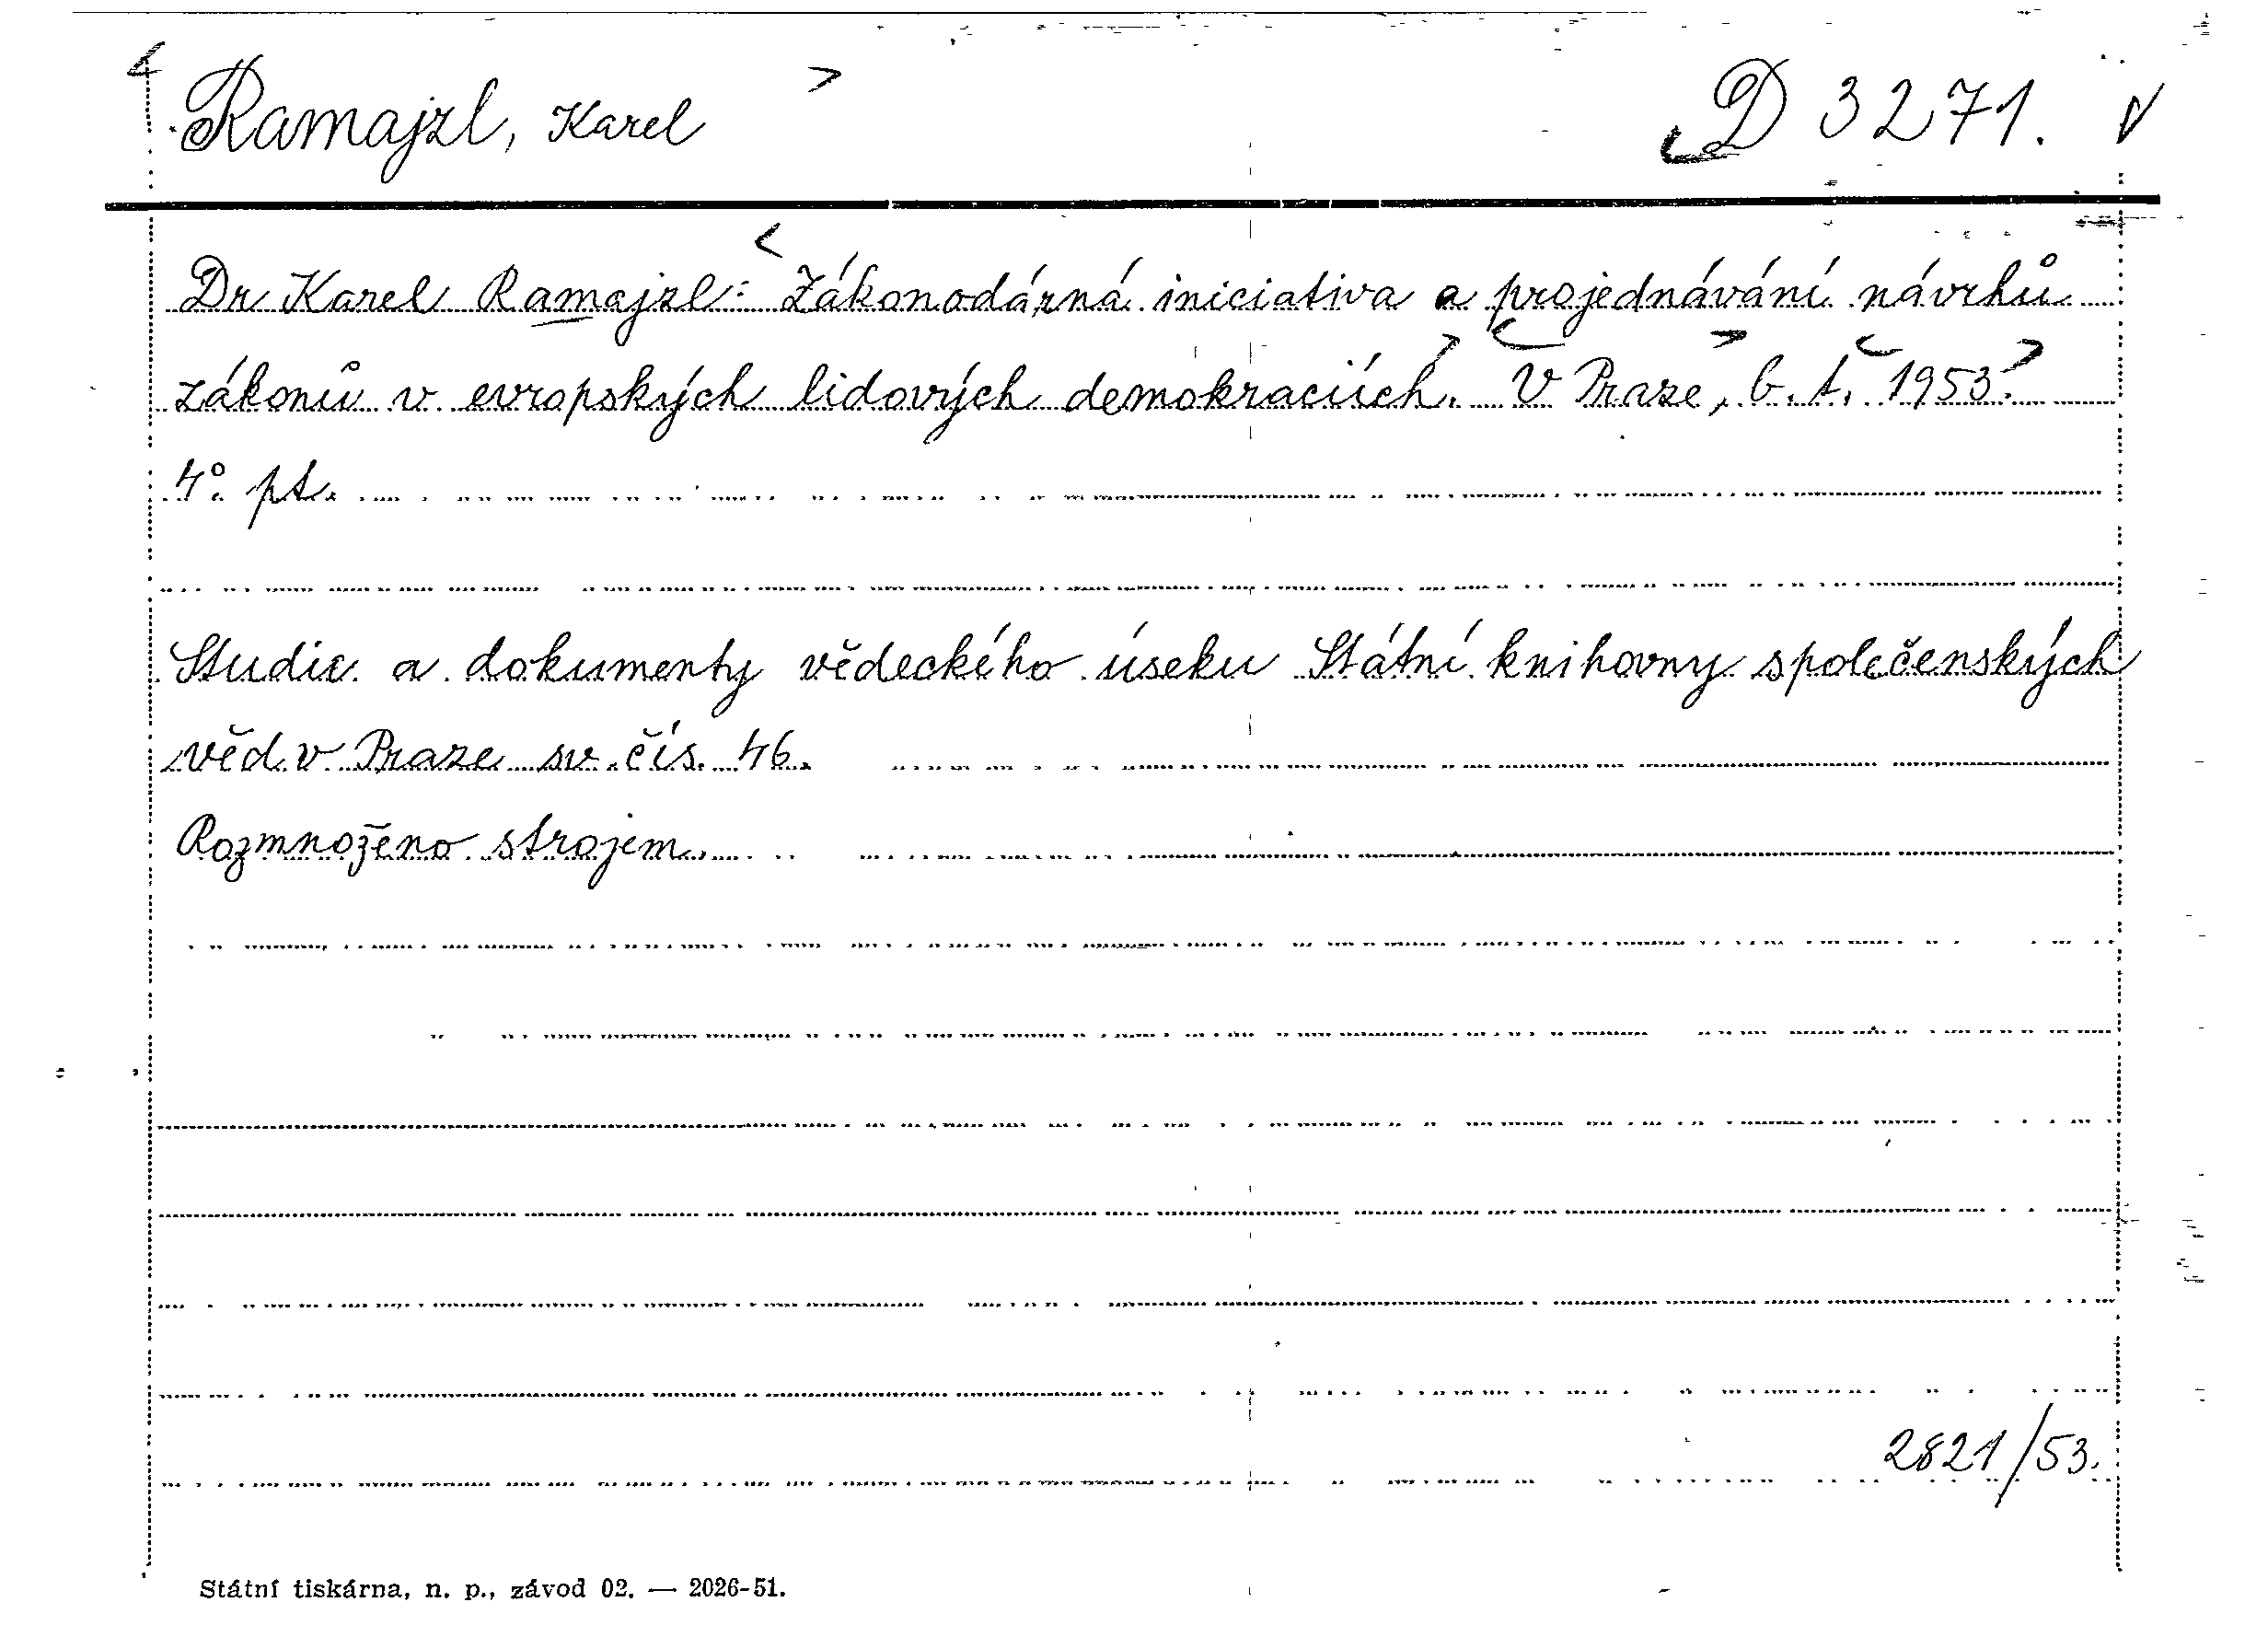 Ramajzl, Karel D 3271.
Dr Karel Ramajzl: Zákonodárná iniciativa a projednávání návrhů
zákonů v evropských lidových demokraciích. V Praze, b. t. 1953.
4°. pt.
Studie a dokumenty vědeckého úseku Státní knihovny společenských
věd v Praze sv. čís. 46.
Rozmnoženo strojem.
2821/53.
Státní tiskárna, n. p., závod 02. — 2026-51.